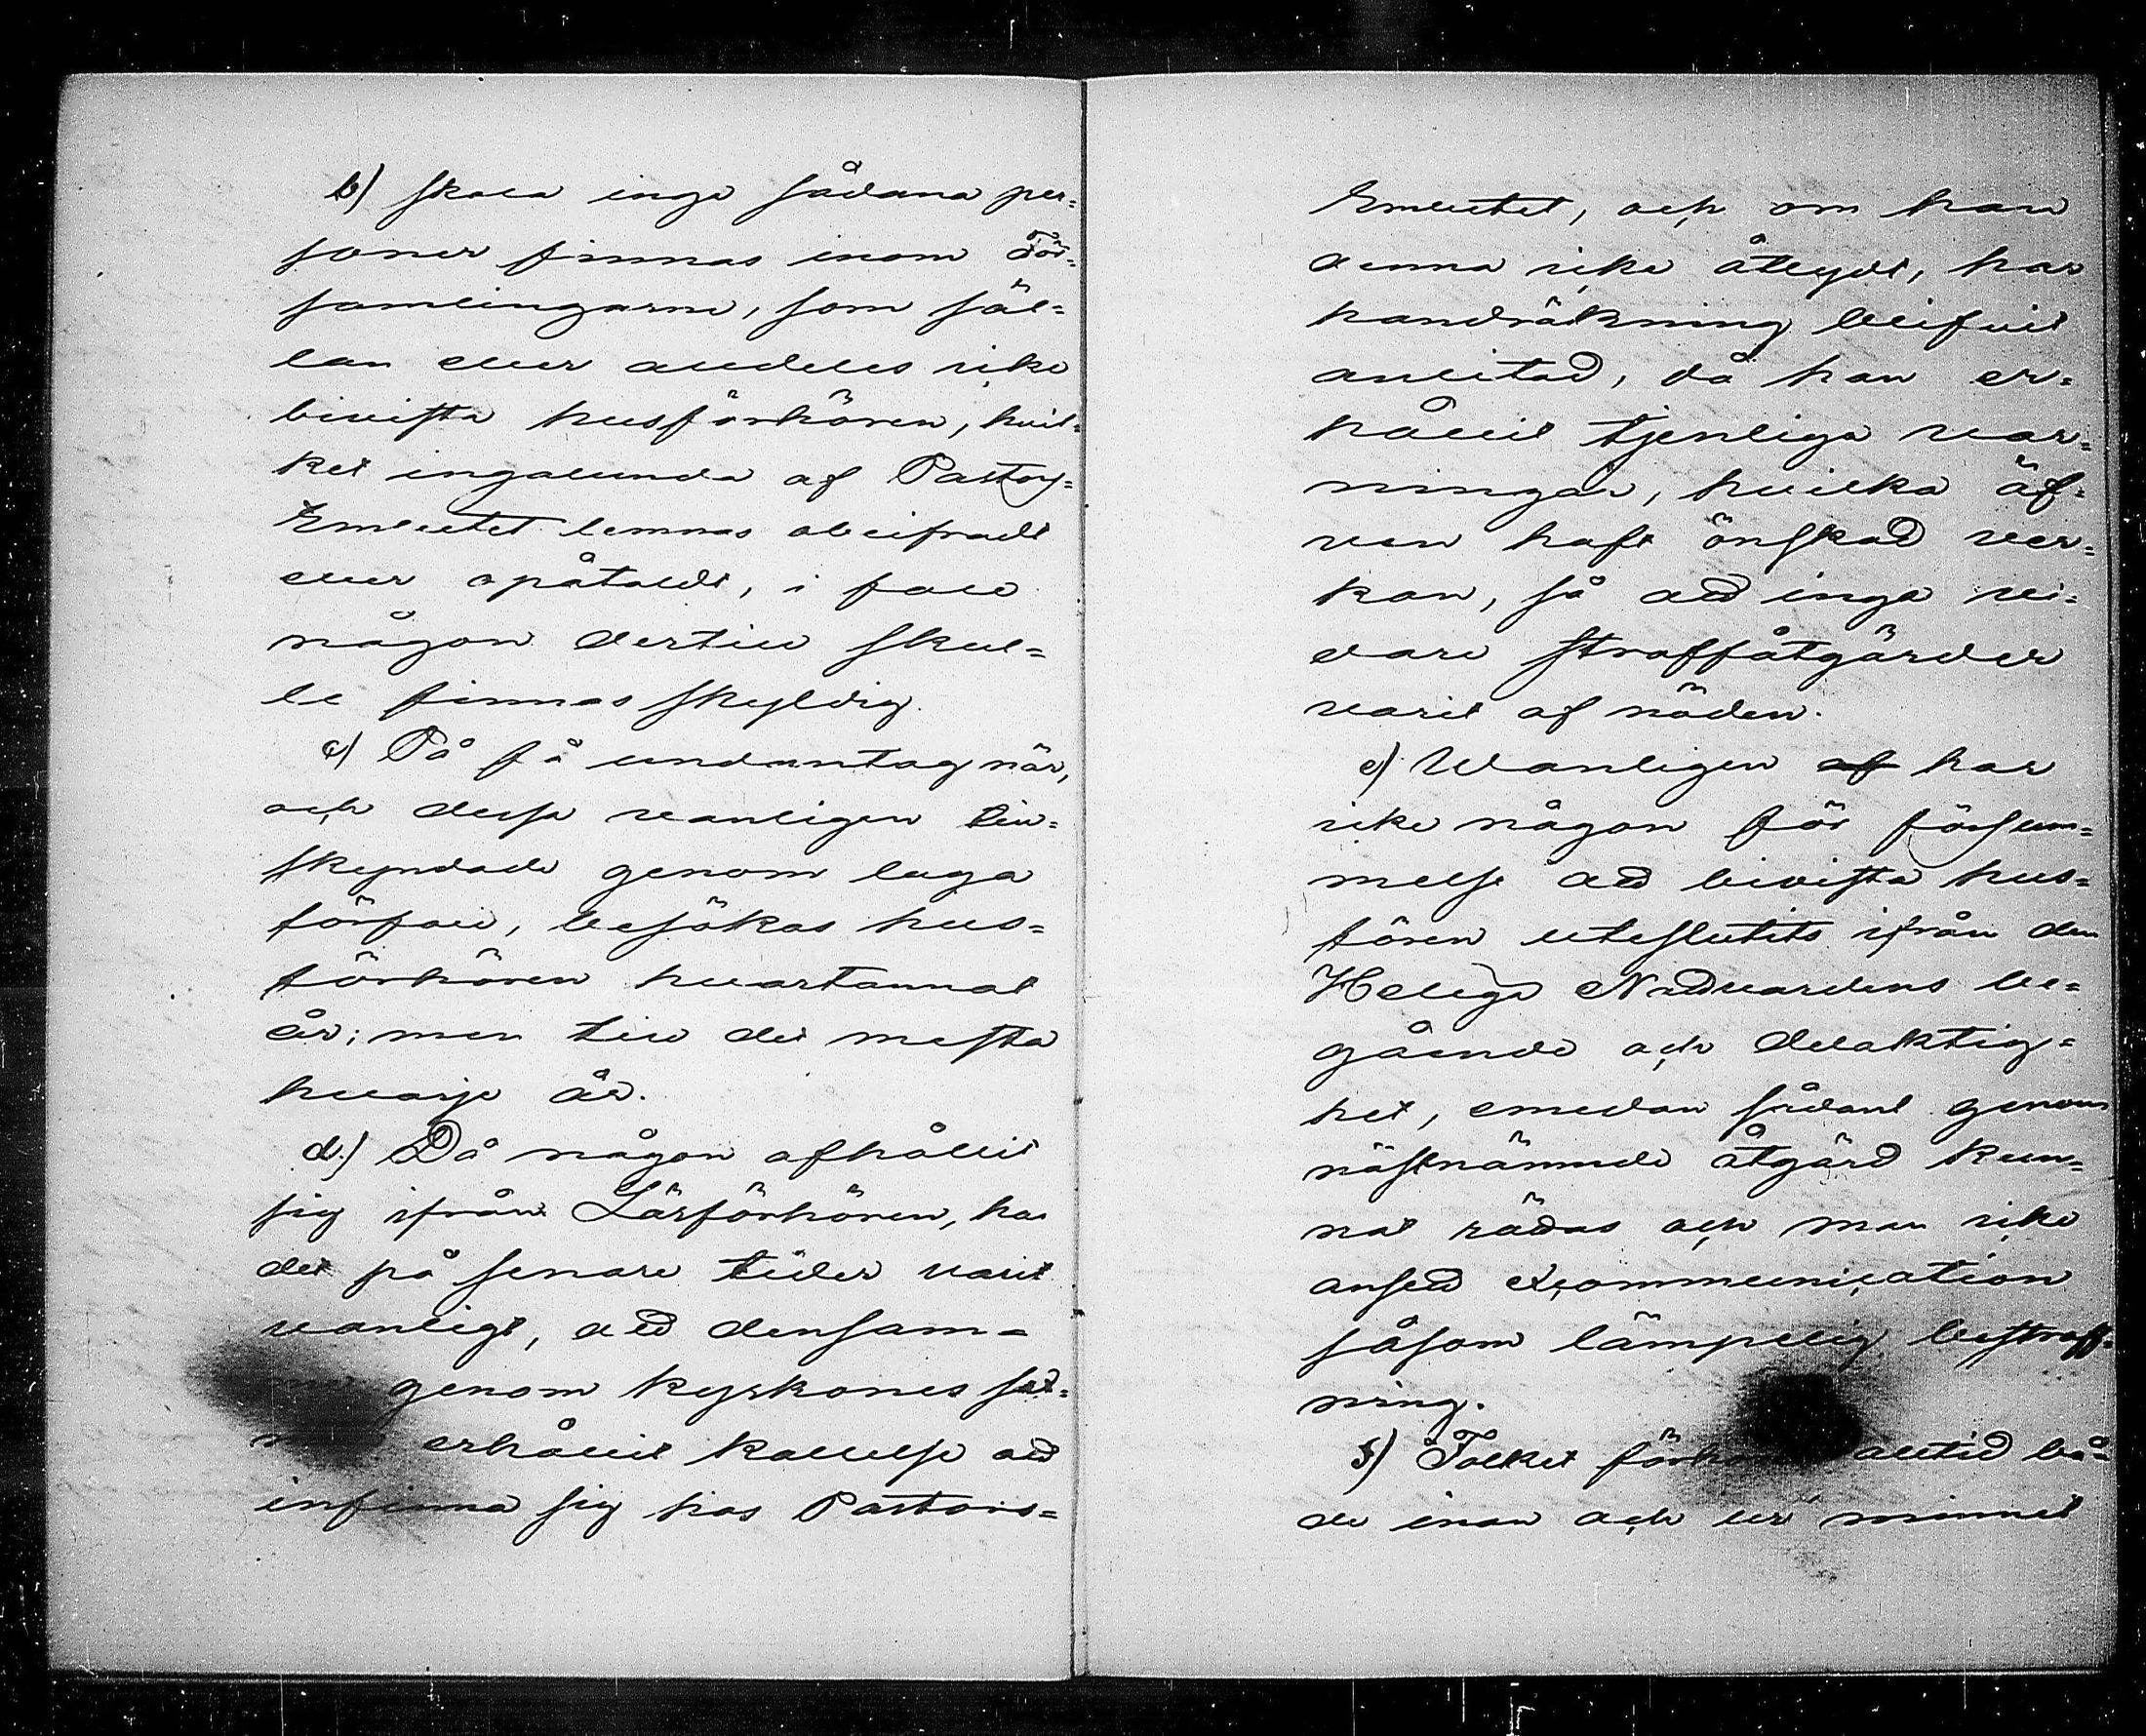 b) skola inga sådana per=
soner finnas inom För=
samlingarne, som säl=
lan eller alldeles icke
bivista husförhören, hvil=
ket ingalunda af Pastors=
Embetet lemnas obeifradt
eller opåtaldt, i fall
någon dertill skul=
le finnas skyldig.
c) På få undantag när,
och dessa vanligen till=
skyndade genom laga
förfall, besökas hus=
förhören hvartannat
år; men till det mesta
hvarje år.
d.) Då någon afhållit
sig ifrån Lärförhören, har
det på senare tider varit
vanligt, att densam=
genom kyrkones sat=
erhållit kallelse att
infinna sig hos Pastors=
Embetet, och om han
denna icke åtlydt, har
handräkning blifvit
anlitad, då han er=
hållit tjenliga var=
ningar, hvilka äf=
ven haft önskad ver=
kan, så att inga vi=
dare straffåtgärder
varit af nöden.
e) Wanligen af har
icke någon för försum=
melse att bivista hus=
fören uteslutits ifrån den
Heliga Nattvardens be=
gående och delaktig=
het, emedan sådant genom
nästnämnde åtgärd kun=
nat rådas och man icke
ansett excommunication
såsom lämpelig bestraff=
ning.
f) Folket alltid bå=
de innan och ur minnet